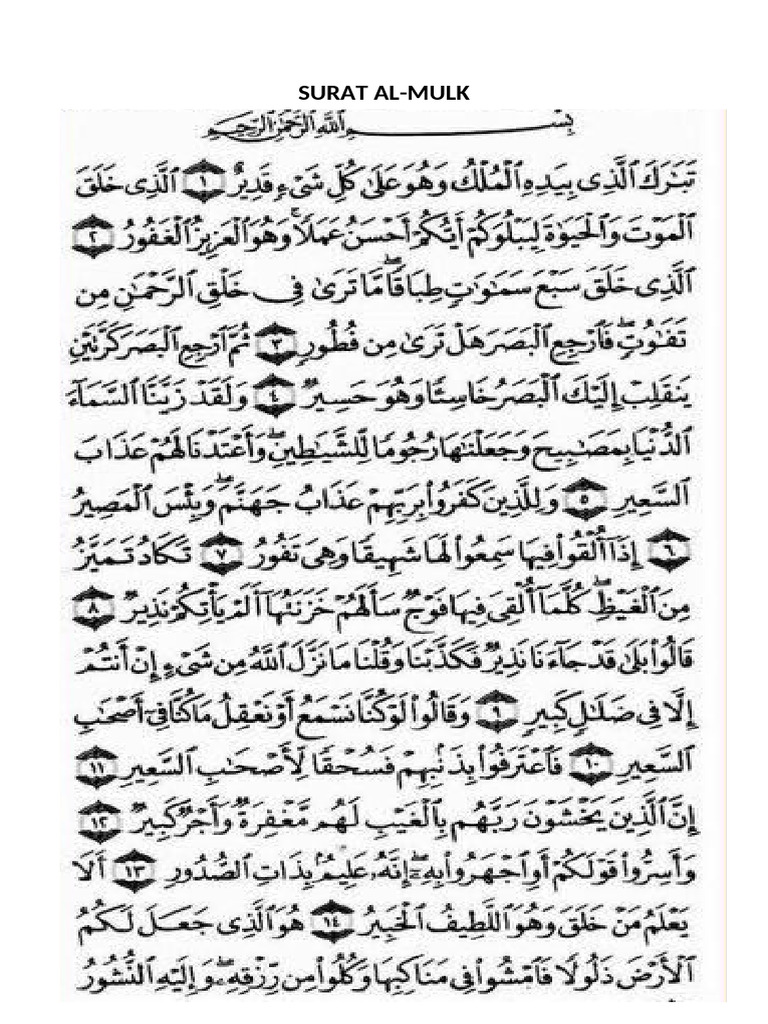 SURAT AL-MULK
بِسْمِ اللَّهِ الرَّحْمَٰنِ الرَّحِيمِ
تَبَٰرَكَ ٱلَّذِى بِيَدِهِ ٱلْمُلْكُ وَهُوَ عَلَىٰ كُلِّ شَىْءٍ قَدِيرٌ ١ ٱلَّذِى خَلَقَ
ٱلْمَوْتَ وَٱلْحَيَوٰةَ لِيَبْلُوَكُمْ أَيُّكُمْ أَحْسَنُ عَمَلًا ۚ وَهُوَ ٱلْعَزِيزُ ٱلْغَفُورُ ٢
ٱلَّذِى خَلَقَ سَبْعَ سَمَٰوَٰتٍ طِبَاقًا ۖ مَّا تَرَىٰ فِى خَلْقِ ٱلرَّحْمَٰنِ مِن
تَفَٰوُتٍ ۖ فَٱرْجِعِ ٱلْبَصَرَ هَلْ تَرَىٰ مِن فُطُورٍ ٣ ثُمَّ ٱرْجِعِ ٱلْبَصَرَ كَرَّتَيْنِ
يَنقَلِبْ إِلَيْكَ ٱلْبَصَرُ خَاسِئًا وَهُوَ حَسِيرٌ ٤ وَلَقَدْ زَيَّنَّا ٱلسَّمَآءَ
ٱلدُّنْيَا بِمَصَٰبِيحَ وَجَعَلْنَٰهَا رُجُومًا لِّلشَّيَٰطِينِ ۖ وَأَعْتَدْنَا لَهُمْ عَذَابَ
ٱلسَّعِيرِ ٥ وَلِلَّذِينَ كَفَرُوا۟ بِرَبِّهِمْ عَذَابُ جَهَنَّمَ ۖ وَبِئْسَ ٱلْمَصِيرُ
٦ إِذَآ أُلْقُوا۟ فِيهَا سَمِعُوا۟ لَهَا شَهِيقًا وَهِىَ تَفُورُ ٧ تَكَادُ تَمَيَّزُ
مِنَ ٱلْغَيْظِ ۖ كُلَّمَآ أُلْقِىَ فِيهَا فَوْجٌ سَأَلَهُمْ خَزَنَتُهَآ أَلَمْ يَأْتِكُمْ نَذِيرٌ ٨
قَالُوا۟ بَلَىٰ قَدْ جَآءَنَا نَذِيرٌ فَكَذَّبْنَا وَقُلْنَا مَا نَزَّلَ ٱللَّهُ مِن شَىْءٍ إِنْ أَنتُمْ
إِلَّا فِى ضَلَٰلٍ كَبِيرٍ ٩ وَقَالُوا۟ لَوْ كُنَّا نَسْمَعُ أَوْ نَعْقِلُ مَا كُنَّا فِىٓ أَصْحَٰبِ
ٱلسَّعِيرِ ١٠ فَٱعْتَرَفُوا۟ بِذَنۢبِهِمْ فَسُحْقًا لِّأَصْحَٰبِ ٱلسَّعِيرِ ١١
إِنَّ ٱلَّذِينَ يَخْشَوْنَ رَبَّهُم بِٱلْغَيْبِ لَهُم مَّغْفِرَةٌ وَأَجْرٌ كَبِيرٌ ١٢
وَأَسِرُّوا۟ قَوْلَكُمْ أَوِ ٱجْهَرُوا۟ بِهِۦٓ ۖ إِنَّهُۥ عَلِيمٌۢ بِذَاتِ ٱلصُّدُورِ ١٣ أَلَا
يَعْلَمُ مَنْ خَلَقَ وَهُوَ ٱللَّطِيفُ ٱلْخَبِيرُ ١٤ هُوَ ٱلَّذِى جَعَلَ لَكُمُ
ٱلْأَرْضَ ذَلُولًا فَٱمْشُوا۟ فِى مَنَاكِبِهَا وَكُلُوا۟ مِن رِّزْقِهِۦ ۖ وَإِلَيْهِ ٱلنُّشُورُ